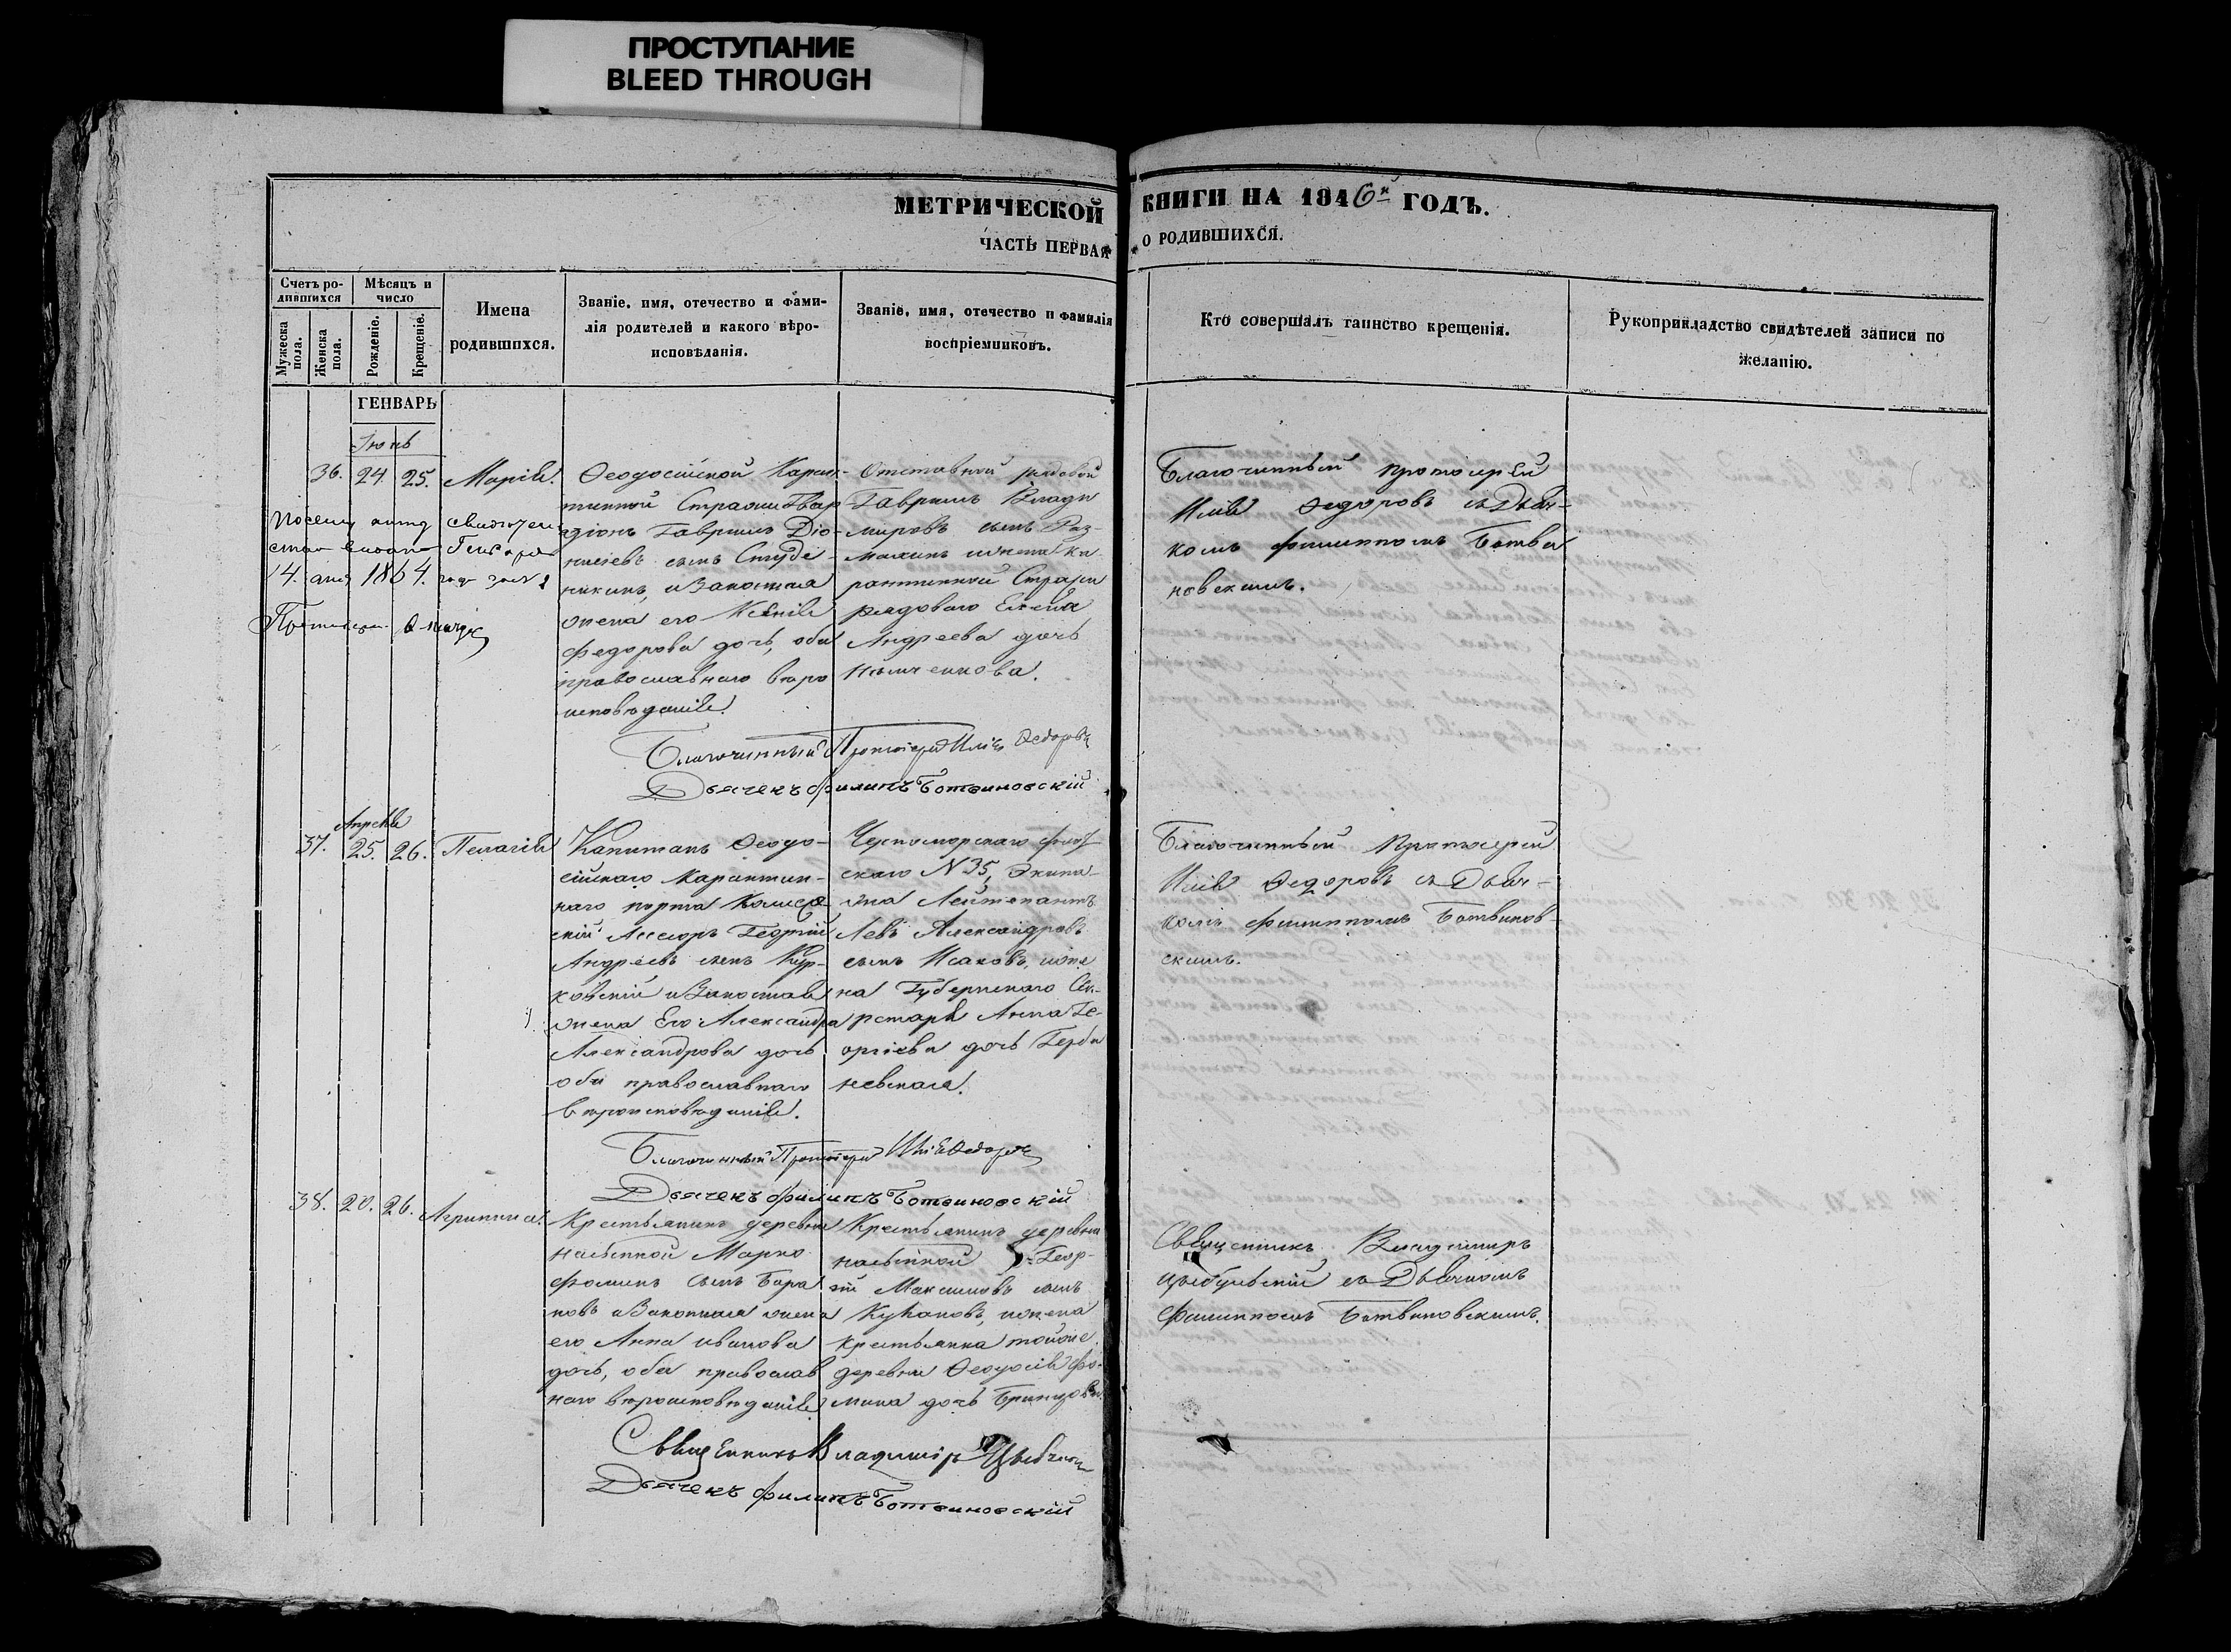 ПРОСТУПАНИЕ
BLEED THROUGH
МЕТРИЧЕСКОЙ КНИГИ НА 1846й ГОДЪ.
ЧАСТЬ ПЕРВАЯ О РОДИВШИХСЯ.
Счетъ ро-
дившихся
Мужеска
пола.
Женска
пола.
Мѣсяцъ и
число
Рожденіе.
Крещеніе.
Имена
родившихся.
Званіе, имя, отечество и фами-
лія родителей и какого вѣро-
исповѣданія.
Званіе, имя, отечество и фамилія
воспріемниковъ.
Кто совершалъ таинство крещенія.
Рукоприкладство свидѣтелей записи по
желанію.
ГЕНВАРЬ
Іюнь
36. 24. 25. Марія.
Ѳеодосійской Каран-
тинной Стражи Гвар
діонъ Гавріилъ Діо-
нисіевъ сынъ Студе-
никинъ, и Законная
жена его Ксенія
Федорова дочь, оба
православнаго вѣро
исповѣданія.
Отставной рядовой
Гавріилъ Влади
міровъ сынъ Раз-
махинъ и жена ка
рантинной Стражи
рядоваго Елена
Андреева дочь
Благочинный протоіерей
Илія Ѳедоровъ съ Дьяч-
комъ Филиппомъ Ботви
новскимъ.
14. 1864. года
Благочинный Протоіерей Илія Ѳедоровъ
Дьячекъ Филипъ Ботвиновскій
Апрѣля
37. 25. 26. Пелагія
Капитанъ Ѳеодо-
сійскаго Карантин-
наго порта Коллеж
скій Асесоръ Георгій
Андреевъ сынъ Кур-
ковскій и Законная
жена Его Александра
Александрова дочь
оба православнаго
вѣроисповѣданія.
Черноморскаго флот
скаго N 35, Экипа-
жа Лейтенантъ
Левъ Александровъ
сынъ Исаковъ, и же
на Губернскаго Сек-
ретаря Анна Ге-
оргіева дочь Герба
невская.
Благочинный Протоіерей
Илія Ѳедоровъ съ Дьяч-
комъ Филиппомъ Ботвинов-
скимъ.
Благочинный Протоіерей Илія Ѳедоровъ
Дьячекъ Филипъ Ботвиновскій
38. 20. 26. Агриппина.
Крестьянинъ деревни
Насыпной Марко
Фоминъ сынъ Бара
новъ и Законная жена
его Анна Иванова
дочь, оба православ
наго вѣроисповѣданія
Крестьянинъ деревни
Насыпной Геор-
гій Максимовъ сынъ
и жена
крестьянка тойже
деревни Ѳеодосія Фо-
мина дочь
Священникъ Владиміръ
Цыбульскій съ Дьячкомъ
Филиппомъ Ботвиновскимъ.
Священникъ Владиміръ
Дьячекъ Филипъ Ботвиновскій